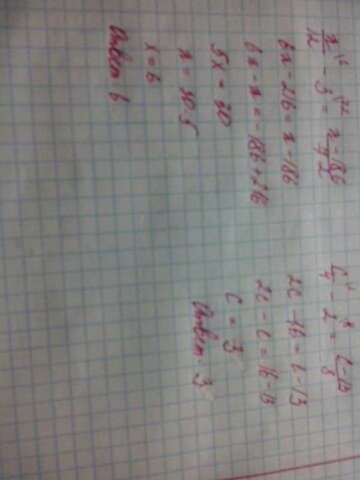 x/12 - 3 = x-186/72
6x - 216 = x - 186
6x - x = -186 + 216
5x = 30
x = 30:5
x = 6
Ответ 6
c/4 - 2 = c-13/8
2c - 16 = c - 13
2c - c = 16 - 13
c = 3
Ответ 3